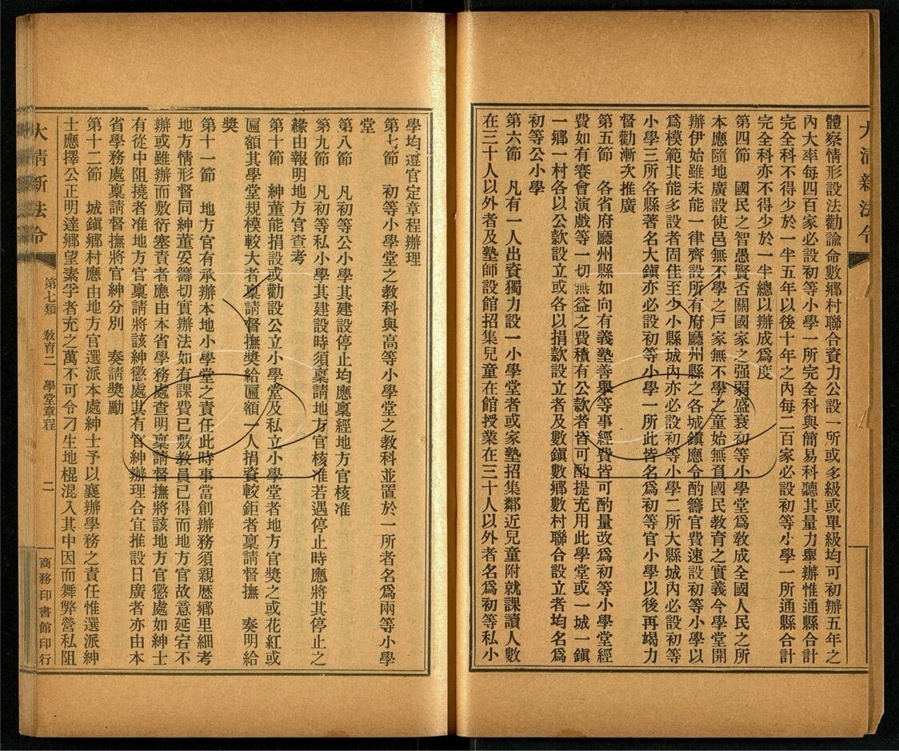 大清新法令
體察情形設法勸諭命數鄉村聯合資力公設一所或多級或單級均可初辦五年之
內大率每四百家必設初等小學一所完全科與簡易科聽其量力舉辦惟通縣合計
完全科不得少於一半五年以後十年之內每二百家必設初等小學一所通縣合計
完全科亦不得少於一半總以辦成爲度
第四節 國民之智愚賢否關國家之强弱盛衰初等小學堂爲敎成全國人民之所
本應隨地廣設使邑無不學之戶家無不學之童始無負國民敎育之實義今學堂開
辦伊始雖未能一律齊設所有府廳州縣之各城鎮應令酌籌官費速設初等小學以
爲模範其能多設者固佳至少小縣城內亦必設初等小學二所大縣城內必設初等
小學三所各縣著名大鎮亦必設初等小學一所此皆名爲初等官小學以後再竭力
督勸漸次推廣
第五節 各省府廳州縣如向有義塾善舉等事經費皆可酌量改爲初等小學堂經
費如有賽會演戲等一切無益之費積有公款者皆可酌提充用此學堂或一城一鎮
一鄉一村各以公款設立或各以捐款設立者及數鎮數鄉數村聯合設立者均名爲
初等公小學
第六節 凡有一人出資獨力設一小學堂者或家塾招集鄰近兒童附就課讀人數
在三十人以外者及塾師設館招集兒童在館授業在三十人以外者名爲初等私小
學均遵官定章程辦理
第七節 初等小學堂之教科與高等小學堂之教科並置於一所者名爲兩等小學
堂
第八節 凡初等公小學其建設停止均應稟經地方官核准
第九節 凡初等私小學其建設時須稟請地方官核准若遇停止時應將其停止之
緣由報明地方官查考
第十節 紳董能捐設或勸設公立小學堂及私立小學堂者地方官獎之或花紅或
匾額其學堂規模較大者稟請督撫獎給匾額一人捐資較鉅者稟請督撫 奏明給
獎
第十一節 地方官有承辦本地小學堂之責任此時事當創辦務須親歷鄉里細考
地方情形督同紳董妥籌切實辦法如有課費已敷敎員已得而地方官故意延宕不
辦或雖辦而敷衍塞責者應由本省學務處查明稟請督撫將該地方官懲處如紳士
有從中阻撓者准地方官稟請將該紳懲處其有官紳辦理合宜推設日廣者亦由本
省學務處稟請督撫將官紳分別 奏請獎勵
第十二節 城鎮鄉村應由地方官選派本處紳士予以襄辦學務之責任惟選派紳
士應擇公正明達鄉望素孚者充之萬不可令刁生地棍混入其中因而舞弊營私阻
大清新法令 第七類 敎育二 學堂章程 二 商務印書館印行